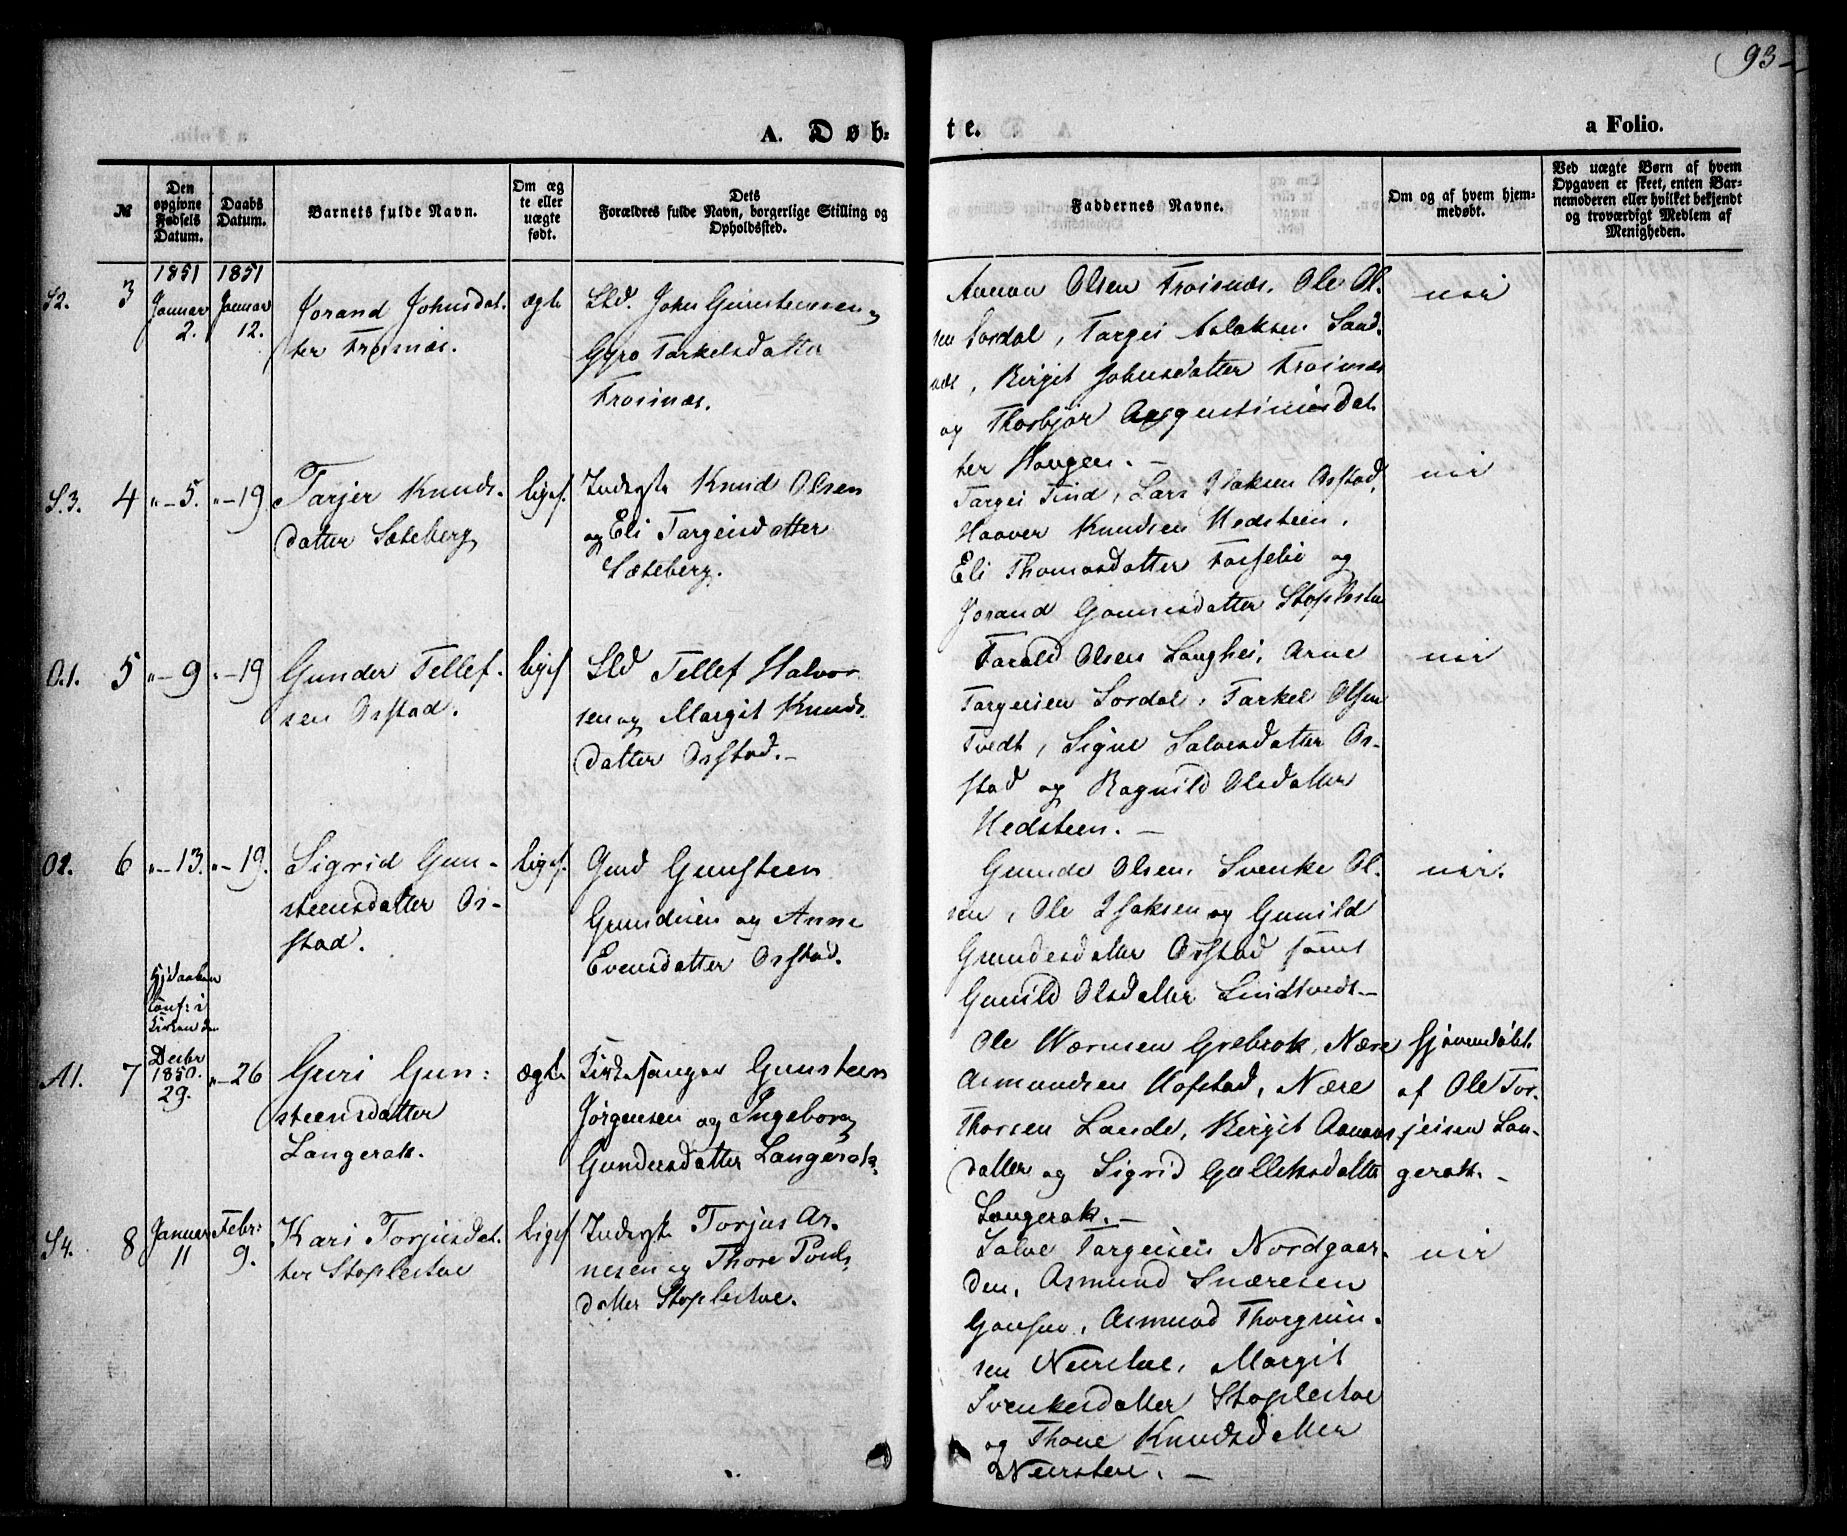 93
A. Døb=
te.
a Folio.
№
Den opgivne Fødsels Datum.
Daabs Datum.
Barnets fulde Navn.
Om æg te eller uægte født.
Dets Forældres fulde Navn, borgerlige Stilling og Opholdssted.
Faddernes Navne.
Om og af hvem hjem- medøbt.
Ved uægte Børn af hvem Opgaven er skeet, enten Bar- nemoderen eller hvilket bekjendt og troværdigt Medlem af Menigheden.
S2. 3
1851 Januar 2.
1851 Januar 12.
Jorand Johnsdat-
ter Frøisnæs.
ægte
Sld. John Gunstensen
Gyro Tarkelsdatter
Froisnæs.
Aanon Olsen Froisnæs, Ole Ol-
sen Sordal, Targei Aslaksen Sand-
næs, Birgit Johnsdatter Froisnæs
og Thorbjør Augustinusdat-
ter Haugen. —
nei
S.3. 4
"–5.
"–19
Tarjer Knuds-
datter Sæteberg
ligef.
Inderste Knud Olsen
og Eli Targeisdatter
Sæteberg.
Targei Tind, Lars Isaksen Osstad,
Haaver Knudsen Hedsteen,
Eli Thomasdatter og
Jorand Gounesdatter Stoplestue
nei
O.1. 5
"–9
"–19
Gunder Tellef-
sen Osstad.
ligef
Sld Tellef Halvor-
sen og Margit Knuds-
datter Osstad. –
Tarald Olsen Langhei, Arne
Targeisen Sordal, Tarkel Olsen
Tvedt, Signe Salvesdatter Os-
stad og Ragnild Olsdatter
Hedsteen. —
nei
O2. 6
"–13.
"–19.
Sigrid Gun-
steensdatter Os-
stad.
ligef.
Gmd Gunsteen
Gundesen og Anne
Evensdatter Osstad.
Gunde Olsen, Svenke Ol-
sen, Ole Isaksen og Gunild
Gundesdatter Osstad samt
Gunild Olsdatter Lindtvedt –
nei.
A1. 7
Hjdaaben
conf: i
Kirken den
Decbr 1850. 29.
"–26
Guri Gun-
steensdatter
Langerak.
ægte
Kirkesanger Gunsteen
Jørgensen og Ingeborg
Gundersdatter Langerak.
Ole Wærnsen Grebrok, Nære
Asmundsen Hofstad, Nære
Thorsen Lande, Birgit Aanons-
datter og Sigrid Gulleksdatter
Langerak. —
Hjemmedøbt
af Ole Tor-
jeisen Lan-
gerak. –
S4. 8
Januar 11
Febr: 9.
Kari Torjusdat-
ter Stoplestue
ligef
Inderste Torjus Ar-
nesen og Thore Pouls-
datter Stoplestue.
Salve Targeisen Nordgaar-
den, Asmund Snæresen
Asmund Thorgrim-
sen Neerstue, Margit
Svenkesdatter Stoplestue
og Thone Knudsdatter
Neerstue. —
nei